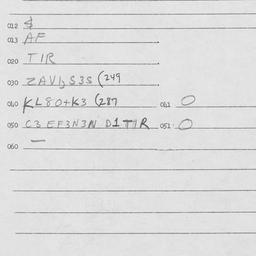 012 $
013 AF
020 TIR
030 ZAVIS3S (249
040 KL80+K3 (287 041 O
050 C3 EF3N3N D1T1R 051 O
060 —